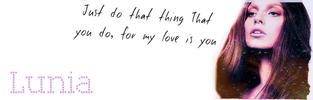 Just do that thing That
you do, for my love is you
Lunia